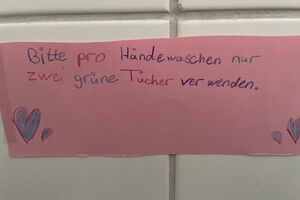 Bitte pro Händewaschen nur
zwei grüne Tücher verwenden.